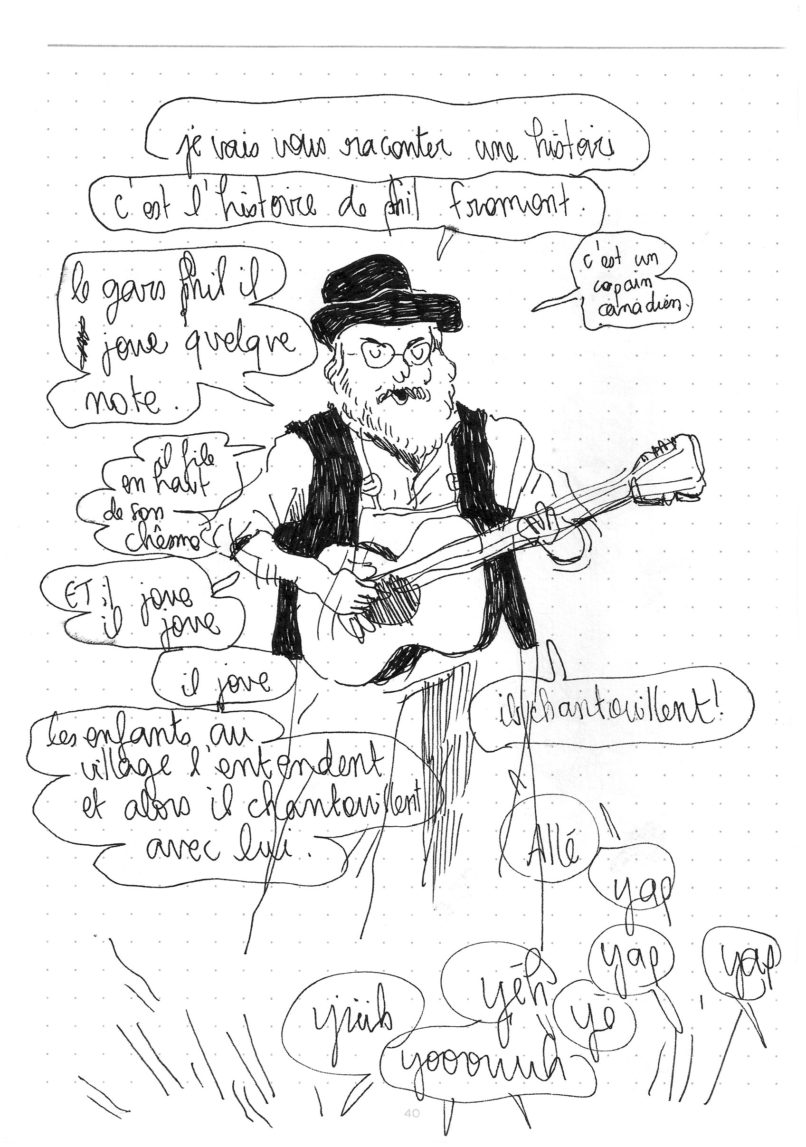 je vais vous raconter une histoire
c'est l'histoire de phil fromont.
c'est un
copain
canadien.
le gars phil il
joue quelque
note.
il file
en haut
de son
chêsne
ET il joue
il joue
il joue
les enfants au
village l'entendent
et alors il chantouillent
avec lui.
ils chantouillent!
Allé
yap
yap
yap
yéh
yé
yiub
yooouuh
40